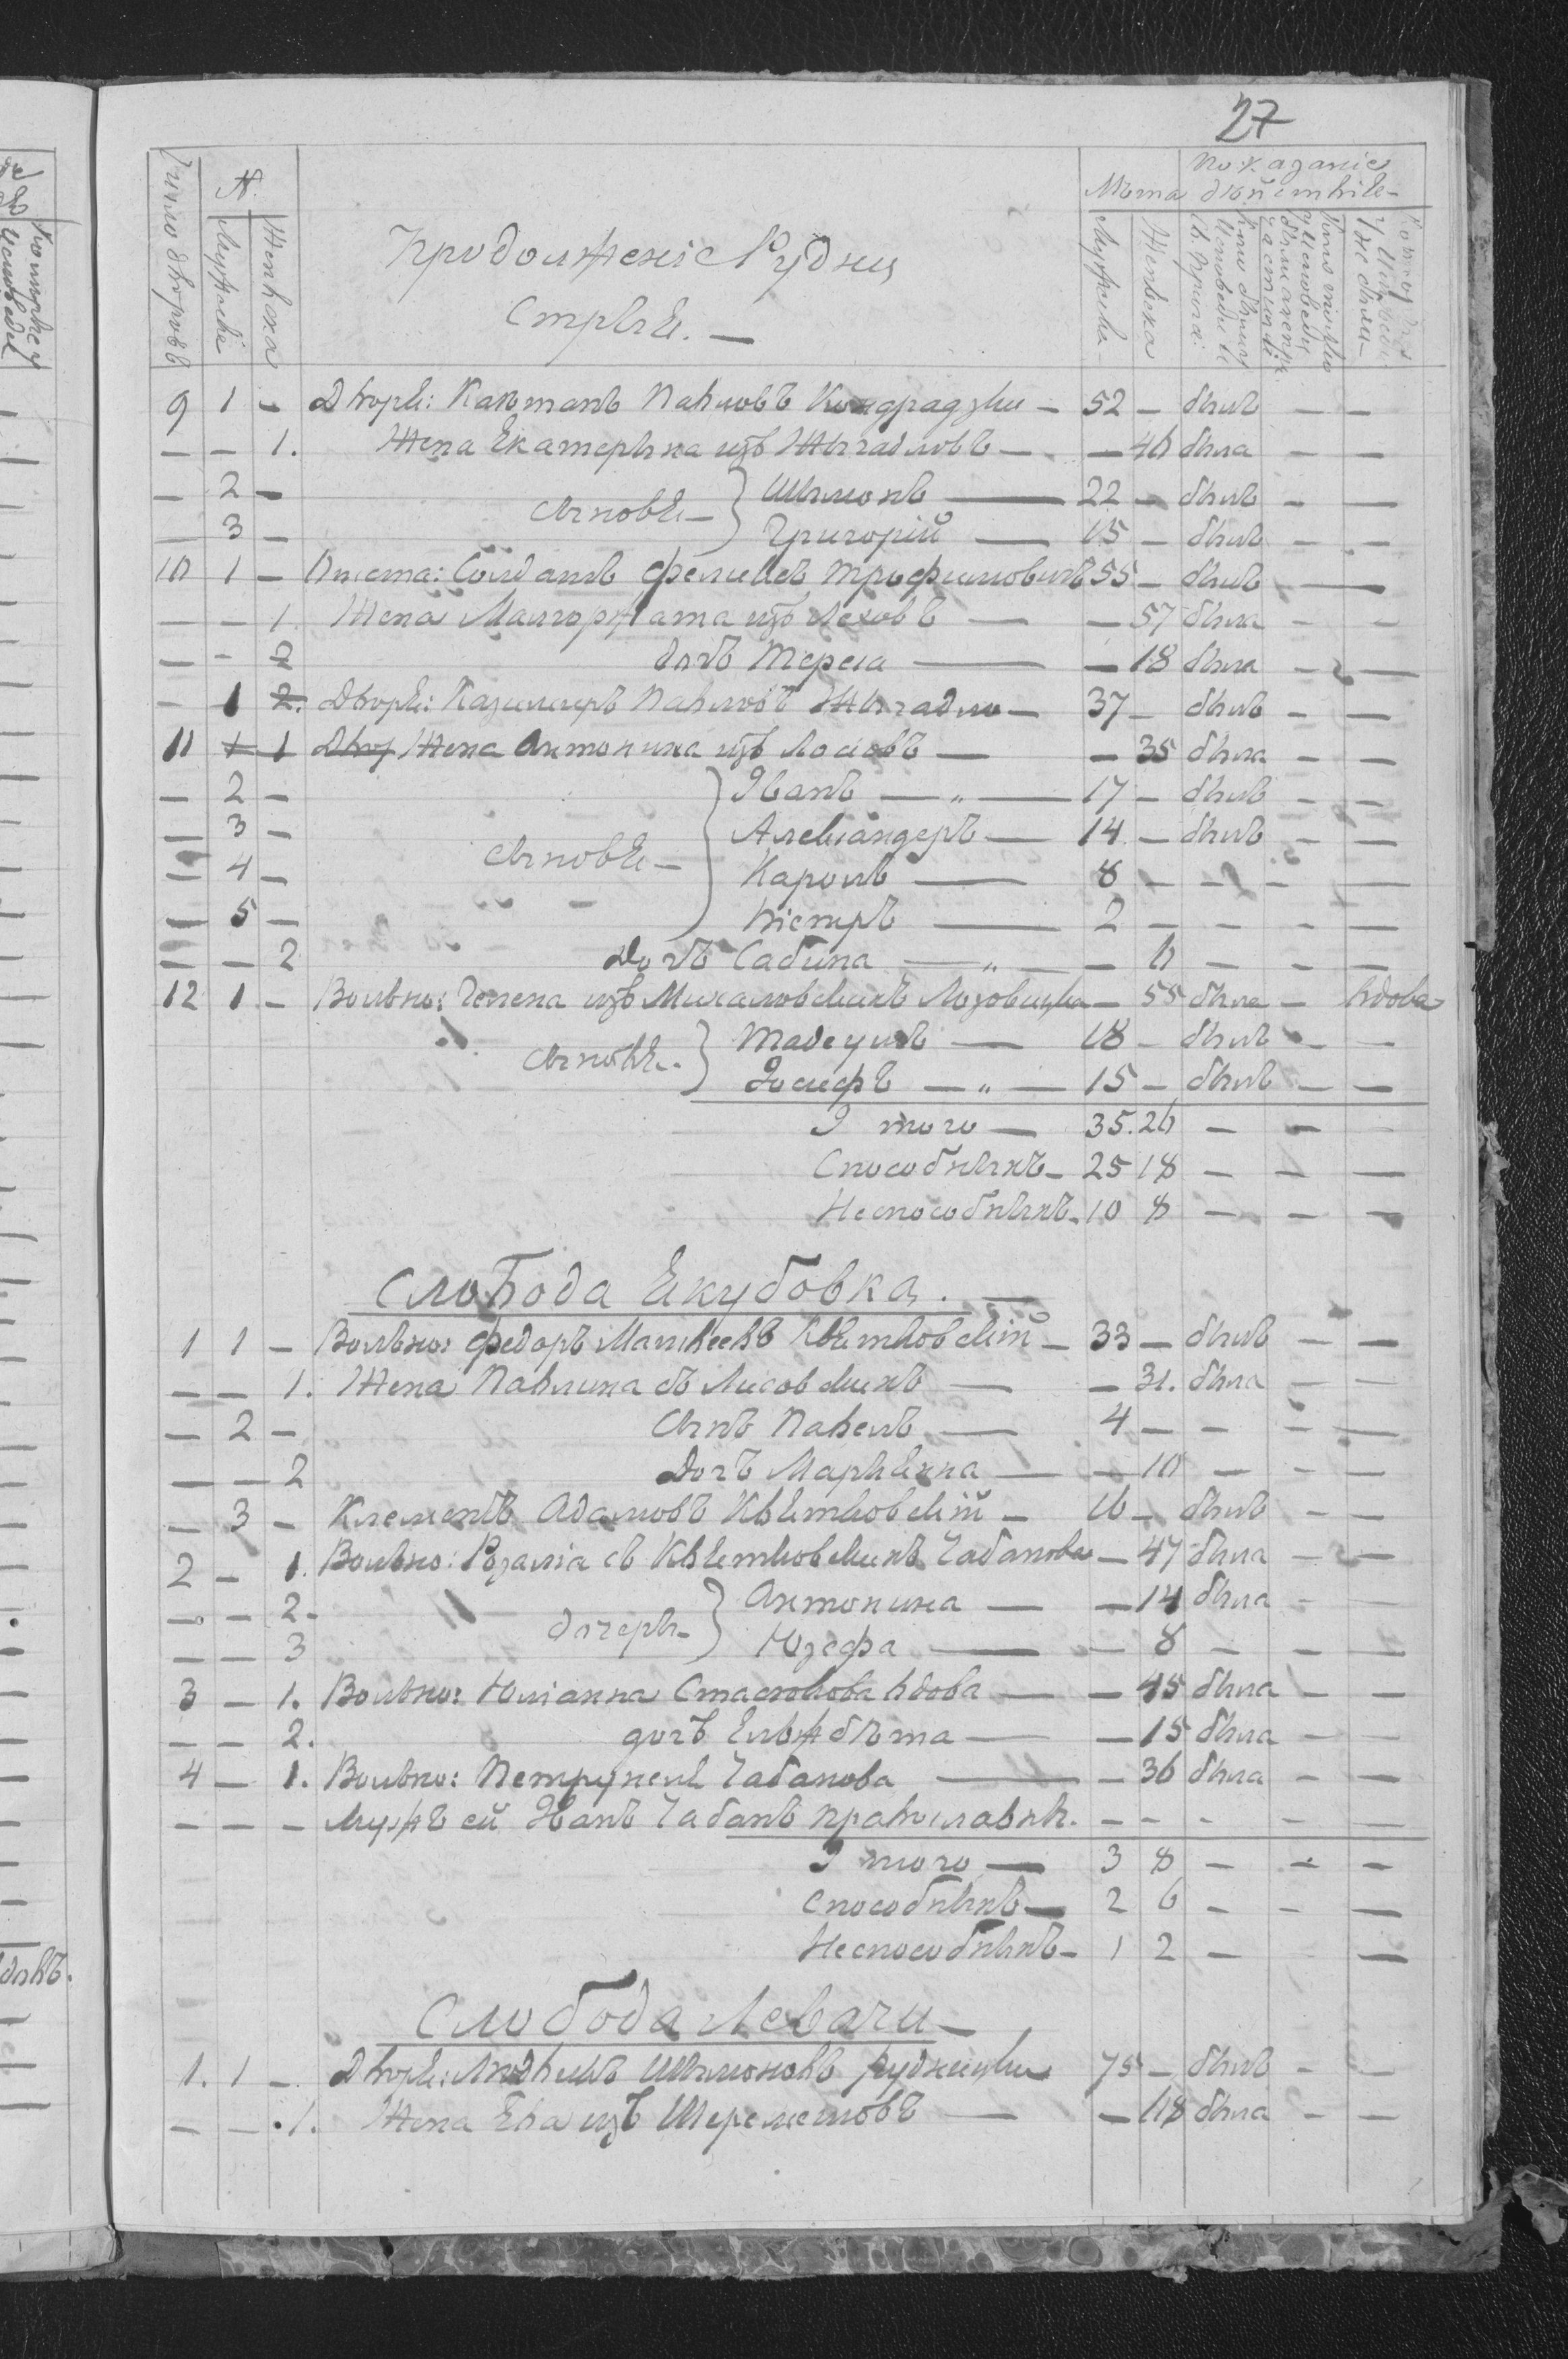 27
Число дворовъ
N.
Мужска
Женска
Продолженіе Рудни
Стрыя. —
Лѣта
Показаніе
дѣйствія
Мужска
Женска
9 1 – Дворя: Каэтанъ Павловъ Кондрадзки – 52 – былъ – –
– – 1. Жена Екатерына изъ Жыгадловъ – – 46 была – –
– 2 – Шымонъ — 22 – былъ – –
Сыновья –
– 3 – Григорій — 15 – былъ – –
10 1 – Солдатъ Феликсъ Трофимовичъ 55 – былъ –
– – 1. Жена Малгоржата изъ Леховъ — – 57 была – –
– – 2 дочъ Тереса — – 18 была – –
– 1 2. Дворя: Казимиръ Павловъ Жыгадло – 37 – былъ – –
11 1 1 Двор Жена Антонина изъ Лосовъ — – 35 была – –
– 2 – Иванъ — „ — 17 – былъ – –
– 3 – Алексіандеръ — 14 – былъ – –
Сыновья –
– 4 – Кароль — 8 – – – –
– 5 – Піетръ — 2 – – – –
– – 2 Дочъ Сабина — „ – – 11 – – –
12 1 – Вольно: Гелена изъ Михаловскихъ Лозовицка – 55 была – Вдова
Тадеушъ — 18 – былъ – –
Сыновья.
Іосифъ — „ — 15 – былъ – –
И того — 35. 26 – – –
Способныхъ – 25 18 – – –
Неспособныхъ – 10 8 – – –
Слобода Якубовка. —
1 1 – Вольно: Федоръ Матвеевъ Квятковскій – 33 – былъ – –
– – 1. Жена Павлина съ Лисовскихъ — – 31. была – –
– 2 – Сынъ Павелъ — 4 – – – –
– – 2 Дочъ Марыянна — – 10 – – –
– 3 – Клементъ Адамовъ Квятковскій – 16 – былъ – –
2 – 1. Вольно: Розалія съ Квятковскихъ Чабанова – 47 была – –
– – 2. Антонина — – 14 была – –
дочеры –
– – 3 Юзефа — – 8 – – –
3 – 1. Вольно: Юліанна Стасюкова вдова — – 45 была – –
– – 2. дочъ Ельжбѣта — – 15 была – –
4 – 1. Вольно: Петрунеля Чабанова — – 36 была – –
– – – Мужъ ей Иванъ Чабанъ православн. – – – – –
И того — 3 8 – – –
Способныхъ — 2 6 – – –
Неспособныхъ – 1 2 – – –
Слобода Левачи –
1. 1 – Дворя: Людвикъ Шымоновъ Рудницки 75 – былъ – –
– – 1. Жена Ева изъ Шереметовъ — – 48 была – –